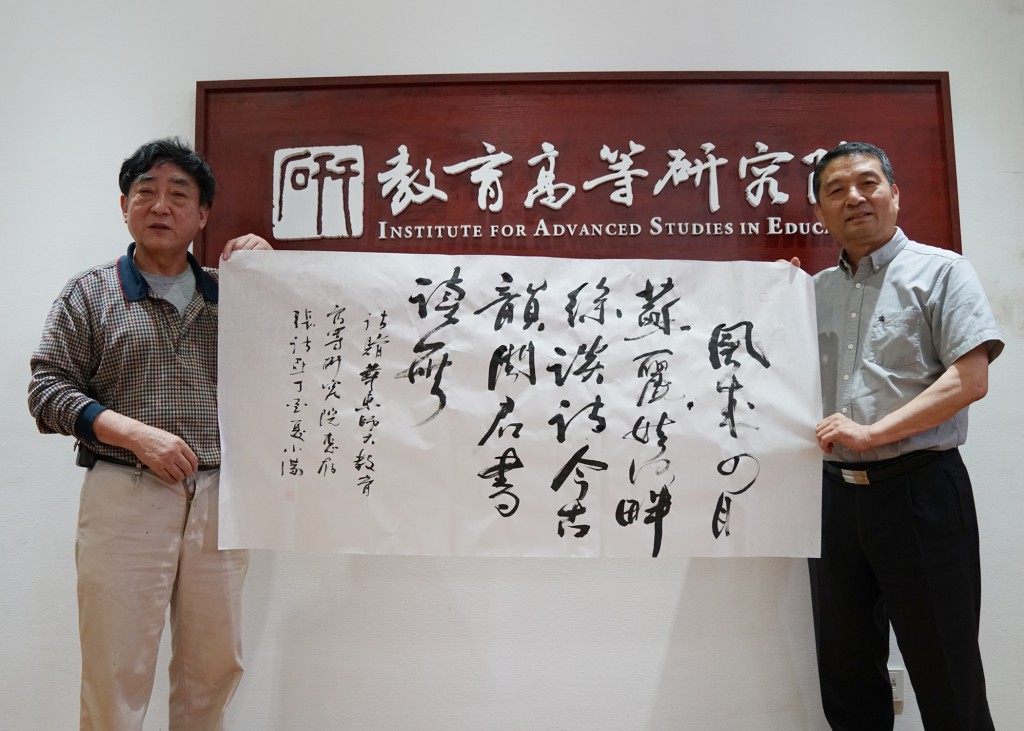 研
教育高等研究
INSTITUTE FOR ADVANCED STUDIES IN
風來四月
蘇麗娃河畔
綠談詩今古
韻問君書
讀無
詩贈華東師大教育
高等研究院惠存
張詩亞丁酉夏小滿